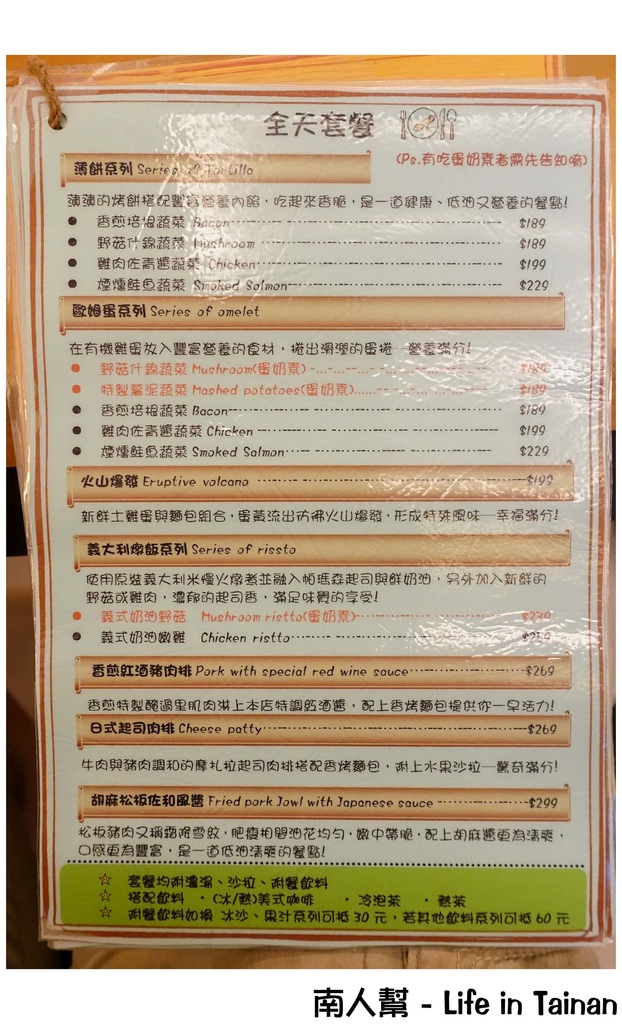 全天套餐
(Ps.有吃蛋奶素者需先告知唷)
薄餅系列 Series of Tortillo
薄薄的烤餅搭配豐富營養內餡，吃起來香脆，是一道健康、低油又營養的餐點!
● 香煎培根蔬菜 Bacon $189
● 野菇什錦蔬菜 Mushroom $189
● 雞肉佐青醬蔬菜 Chicken $199
● 煙燻鮭魚蔬菜 Smoked Salmon $229
歐姆蛋系列 Series of omelet
在有機雞蛋放入豐富營養的食材，捲出滑潤的蛋捲─營養滿分!
● 野菇什錦蔬菜 Mushroom(蛋奶素) $189
● 特製薯泥蔬菜 Mashed potatoes(蛋奶素) $189
● 香煎培根蔬菜 Bacon $189
● 雞肉佐青醬蔬菜 Chicken $199
● 煙燻鮭魚蔬菜 Smoked Salmon $229
火山爆發 Eruptive volcano $199
新鮮土雞蛋與麵包組合，蛋黃流出彷彿火山爆發，形成特殊風味─幸福滿分!
義大利燉飯系列 Series of rissto
使用原裝義大利米慢火燉煮並融入帕瑪森起司與鮮奶油，另外加入新鮮的
野菇或雞肉，濃郁的起司香，滿足味覺的享受!
● 義式奶油野菇 Mushroom ristto(蛋奶素) $239
● 義式奶油嫩雞 Chicken ristto
香煎紅酒豬肉排 Pork with special red wine sauce $269
香煎特製醃過里肌肉淋上本店特調紅酒醬，配上香烤麵包提供你一早活力!
日式起司肉排 Cheese patty $269
牛肉與豬肉調和的摩扎拉起司肉排搭配香烤麵包，附上水果沙拉─驚奇滿分!
胡麻松板佐和風醬 Fried pork Jowl with Japanese sauce $299
松板豬肉又稱霜降雪紋，肥瘦相間油花均勻，嫩中帶脆，配上胡麻醬更為清爽，
口感更為豐富，是一道低油清爽的餐點!
☆ 套餐均附濃湯、沙拉、附餐飲料
☆ 搭配飲料 ・(冰/熱)美式咖啡 ・冷泡茶 ・熱茶
☆ 附餐飲料如換 冰沙、果汁系列可抵 30 元，若其他飲料系列可抵 60 元
南人幫 - Life in Tainan